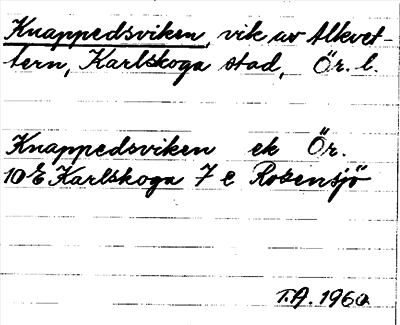 Knappedsviken, vik av Alkvet-
tern, Karlskoga stad, Ör. l.
Knappedsviken ek Ör.
10 E Karlskoga 7 e Rosensjö
T.A. 1960